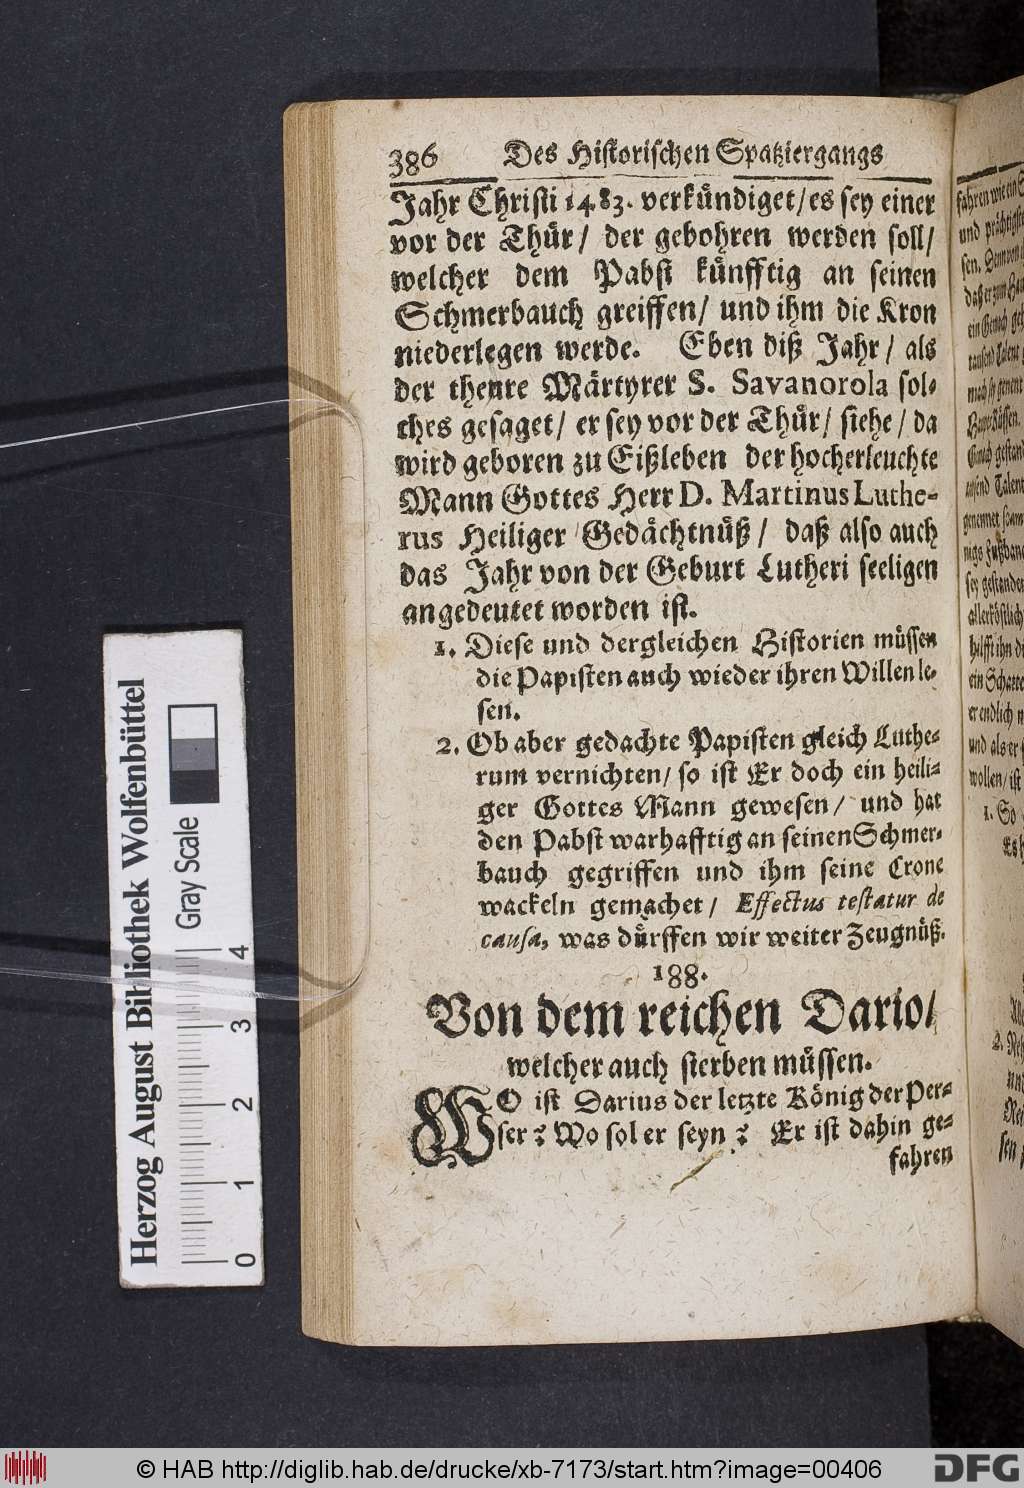 386 Des Historischen Spatziergangs
Jahr Christi 1483. verkündiget/ es sey einer
vor der Thür/ der gebohren werden soll/
welcher dem Pabst künfftig an seinen
Schmerbauch greiffen/ und ihm die Kron
niederlegen werde. Eben diß Jahr/ als
der theure Märtyrer S. Savanorola sol-
ches gesaget/ er sey vor der Thür/ siehe/ da
wird geboren zu Eißleben der hocherleuchte
Mann Gottes Herr D. Martinus Luthe-
rus Heiliger Gedächtnüß/ daß also auch
das Jahr von der Geburt Lutheri seeligen
angedeutet worden ist.
1. Diese und dergleichen Historien müssen
die Papisten auch wieder ihren Willen le-
sen.
2. Ob aber gedachte Papisten gleich Luthe-
rum vernichten/ so ist Er doch ein heili-
ger Gottes Mann gewesen/ und hat
den Pabst warhafftig an seinen Schmer-
bauch gegriffen und ihm seine Crone
wackeln gemachet/ Effectus testatur de
causa, was dürffen wir weiter Zeugnüß.
188.
Von dem reichen Dario/
welcher auch sterben müssen.
WO ist Darius der letzte König der Per-
ser? Wo sol er seyn? Er ist dahin ge-
fahren
fahren wie ein
und
sen.
ein
tausend Talent
Talent
sey gestanden
ein
er endlich
und als er
wollen/ ist
1. So
2.
Herzog August Bibliothek Wolfenbüttel
Gray Scale
0 1 2 3 4
© HAB http://diglib.hab.de/drucke/xb-7173/start.htm?image=00406
DFG